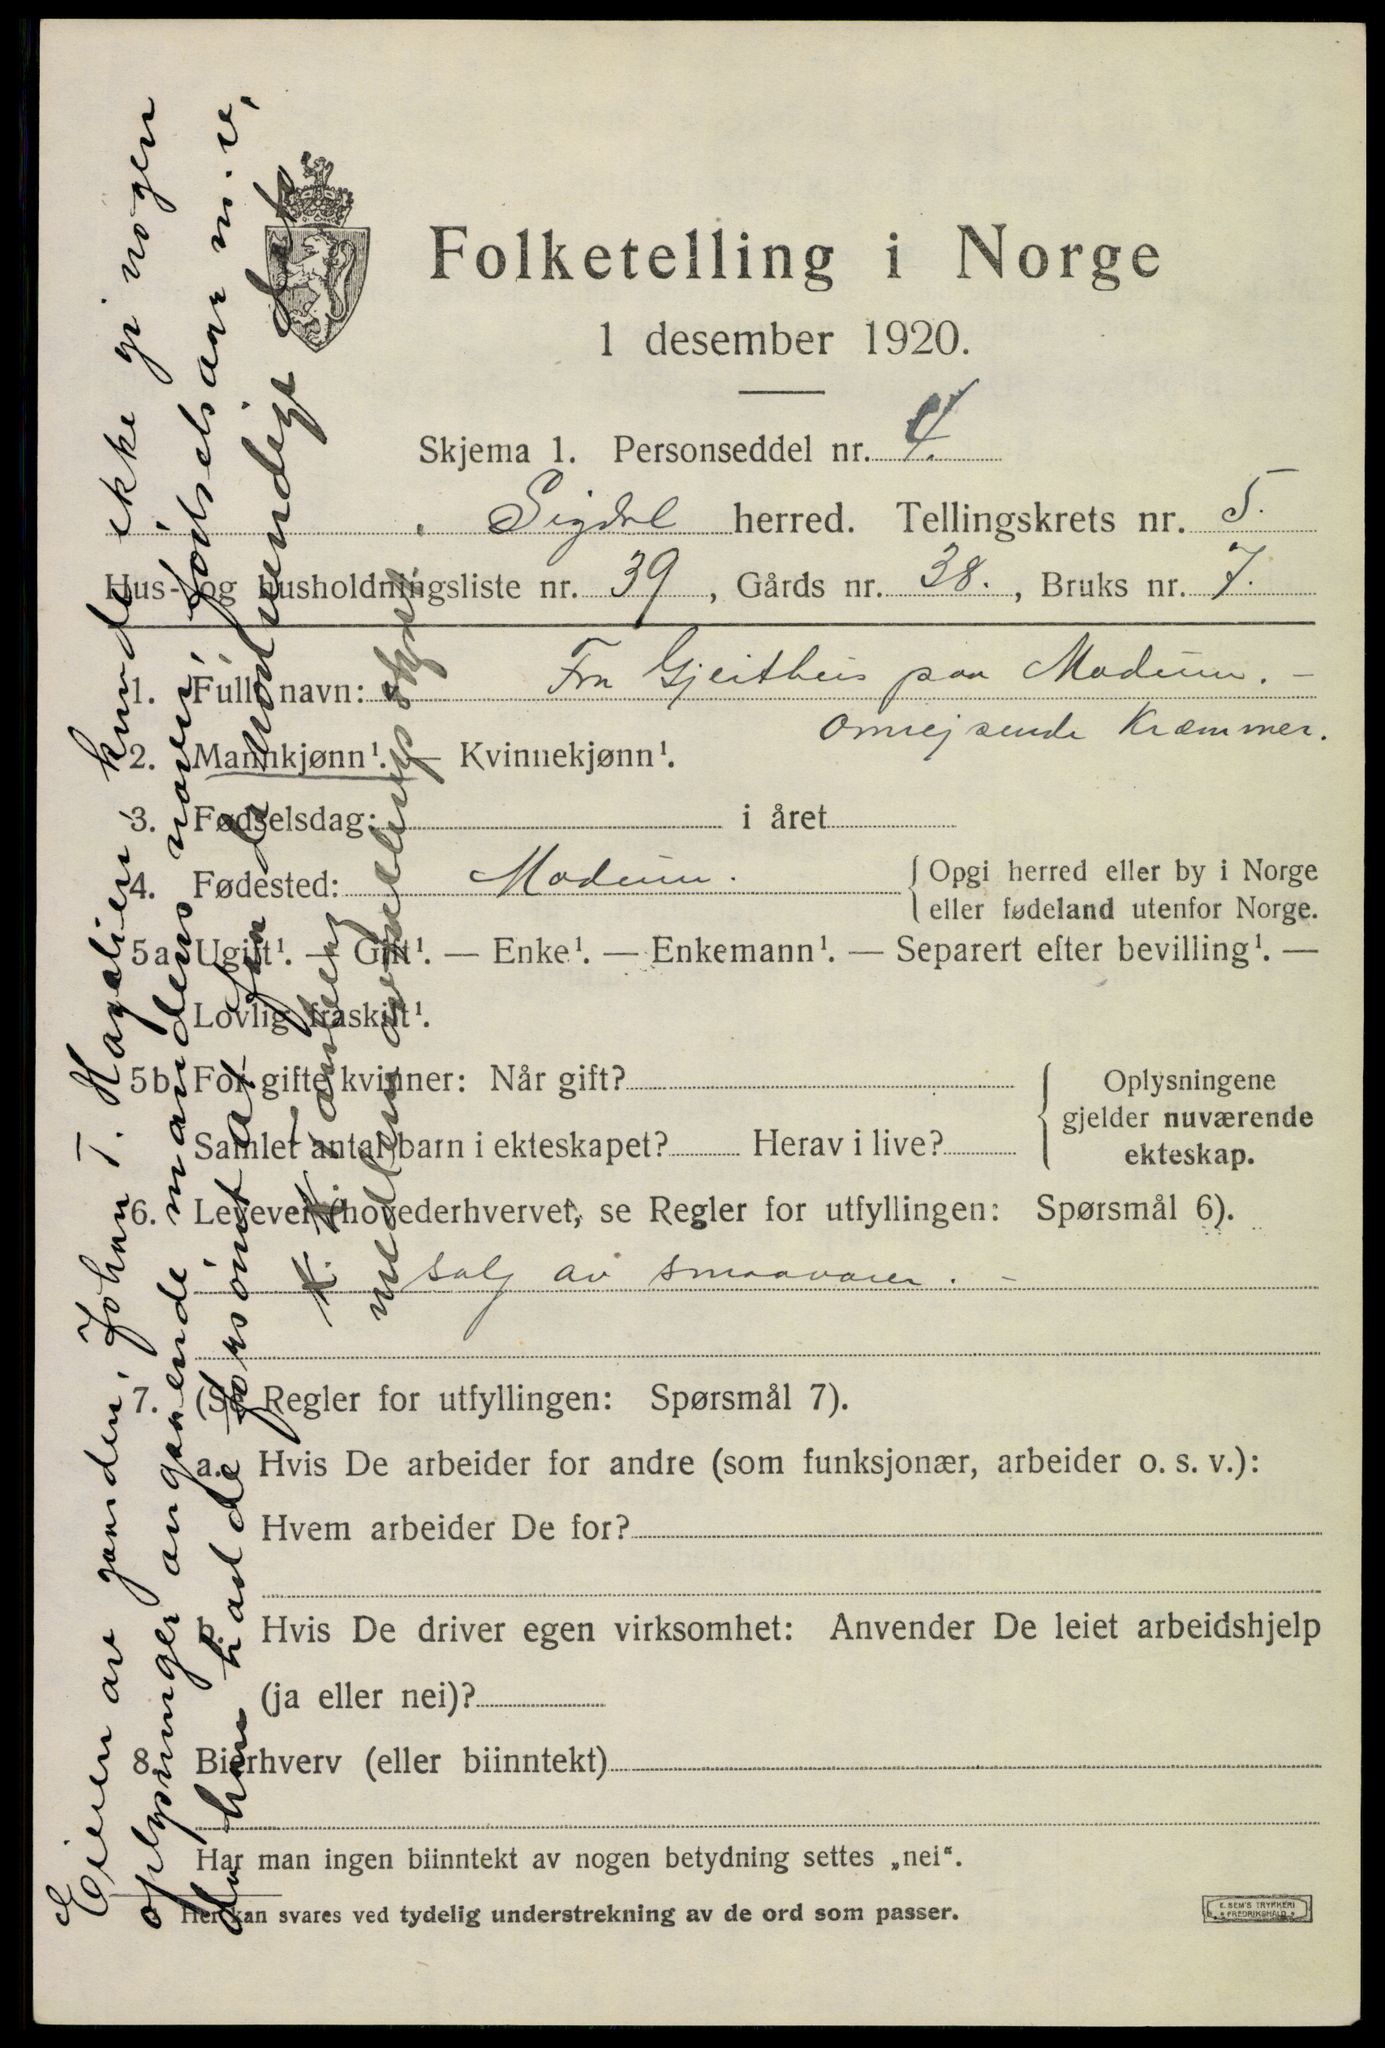 Folketelling i Norge
1 desember 1920.
Skjema 1. Personseddel nr. 4.
Sigdal herred. Tellingskrets nr. 5.
Hus- og husholdningsliste nr. 39, Gårds nr. 38., Bruks nr. 7.
1. Fullt navn: Fra Gjeithus paa Modum. —
omrejsende Kræmmer.
2. Mannkjønn¹. — Kvinnekjønn¹.
3. Fødselsdag: i året
4. Fødested: Modum. { Opgi herred eller by i Norge
eller fødeland utenfor Norge.
5a Ugift¹. — Gift¹. — Enke¹. — Enkemann¹. — Separert efter bevilling¹. —
Lovlig fraskilt¹.
5b For gifte kvinner: Når gift? { Oplysningene
gjelder nuværende
Samlet antal barn i ekteskapet? Herav i live? ekteskap.
6. Levevei (hovederhvervet, se Regler for utfyllingen: Spørsmål 6).
salg av smaavarer. —
7. (Se Regler for utfyllingen: Spørsmål 7).
a. Hvis De arbeider for andre (som funksjonær, arbeider o. s. v.):
Hvem arbeider De for?
b. Hvis De driver egen virksomhet: Anvender De leiet arbeidshjelp
(ja eller nei)?
8. Bierhverv (eller biinntekt)
Har man ingen biinntekt av nogen betydning settes „nei“.
¹ Her kan svares ved tydelig understrekning av de ord som passer.
E. SEM'S TRYKKERI
FREDRIKSHALD
Eieren av gaarden, Johan T. Haglien kunde ikke gi nogen
oplysninger angaaende mandens navn, fødselsaar m. v,
da han hadde forsømt at faa de nødvendige